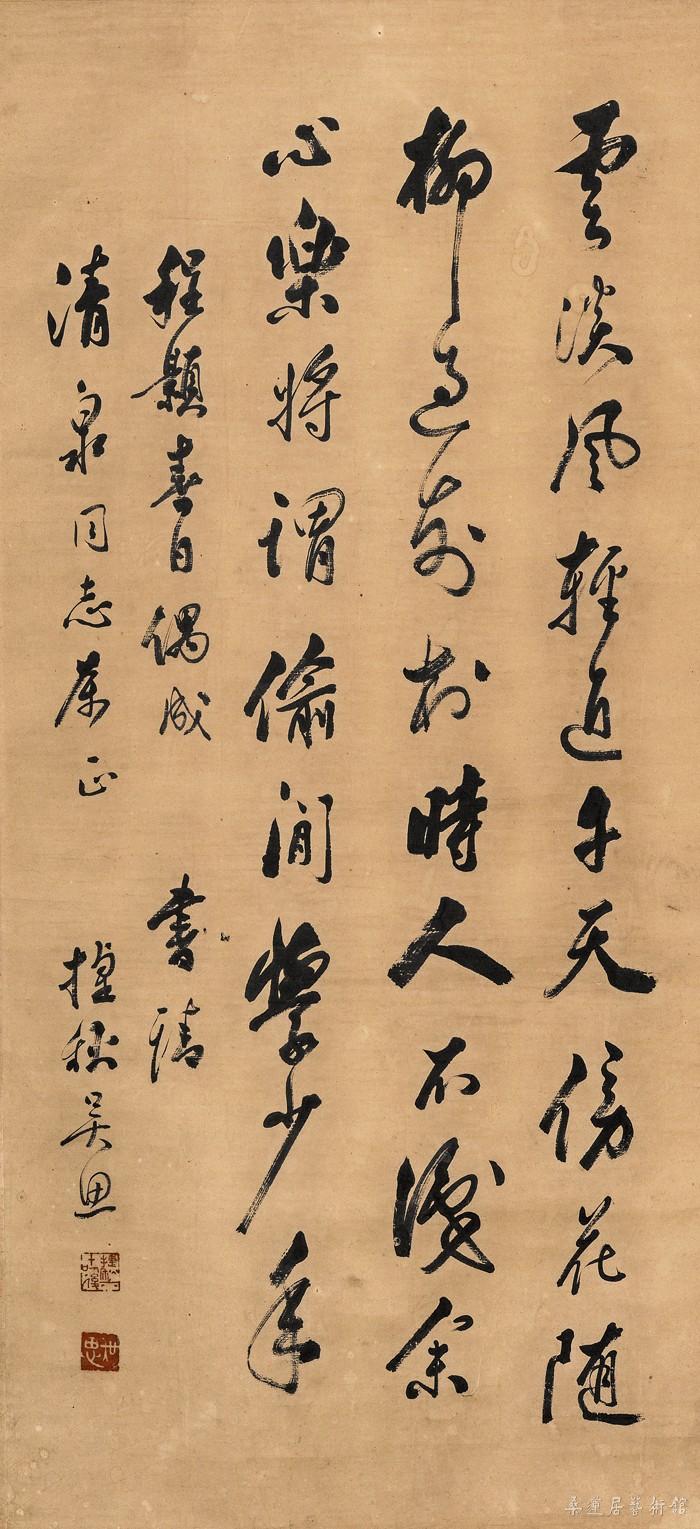 雲淡風輕近午天傍花随
柳過前村時人不識余
心樂將謂偷閒學少年
程顥春日偶成 書請
清泉同志正 吴
桑蓮居藝術館